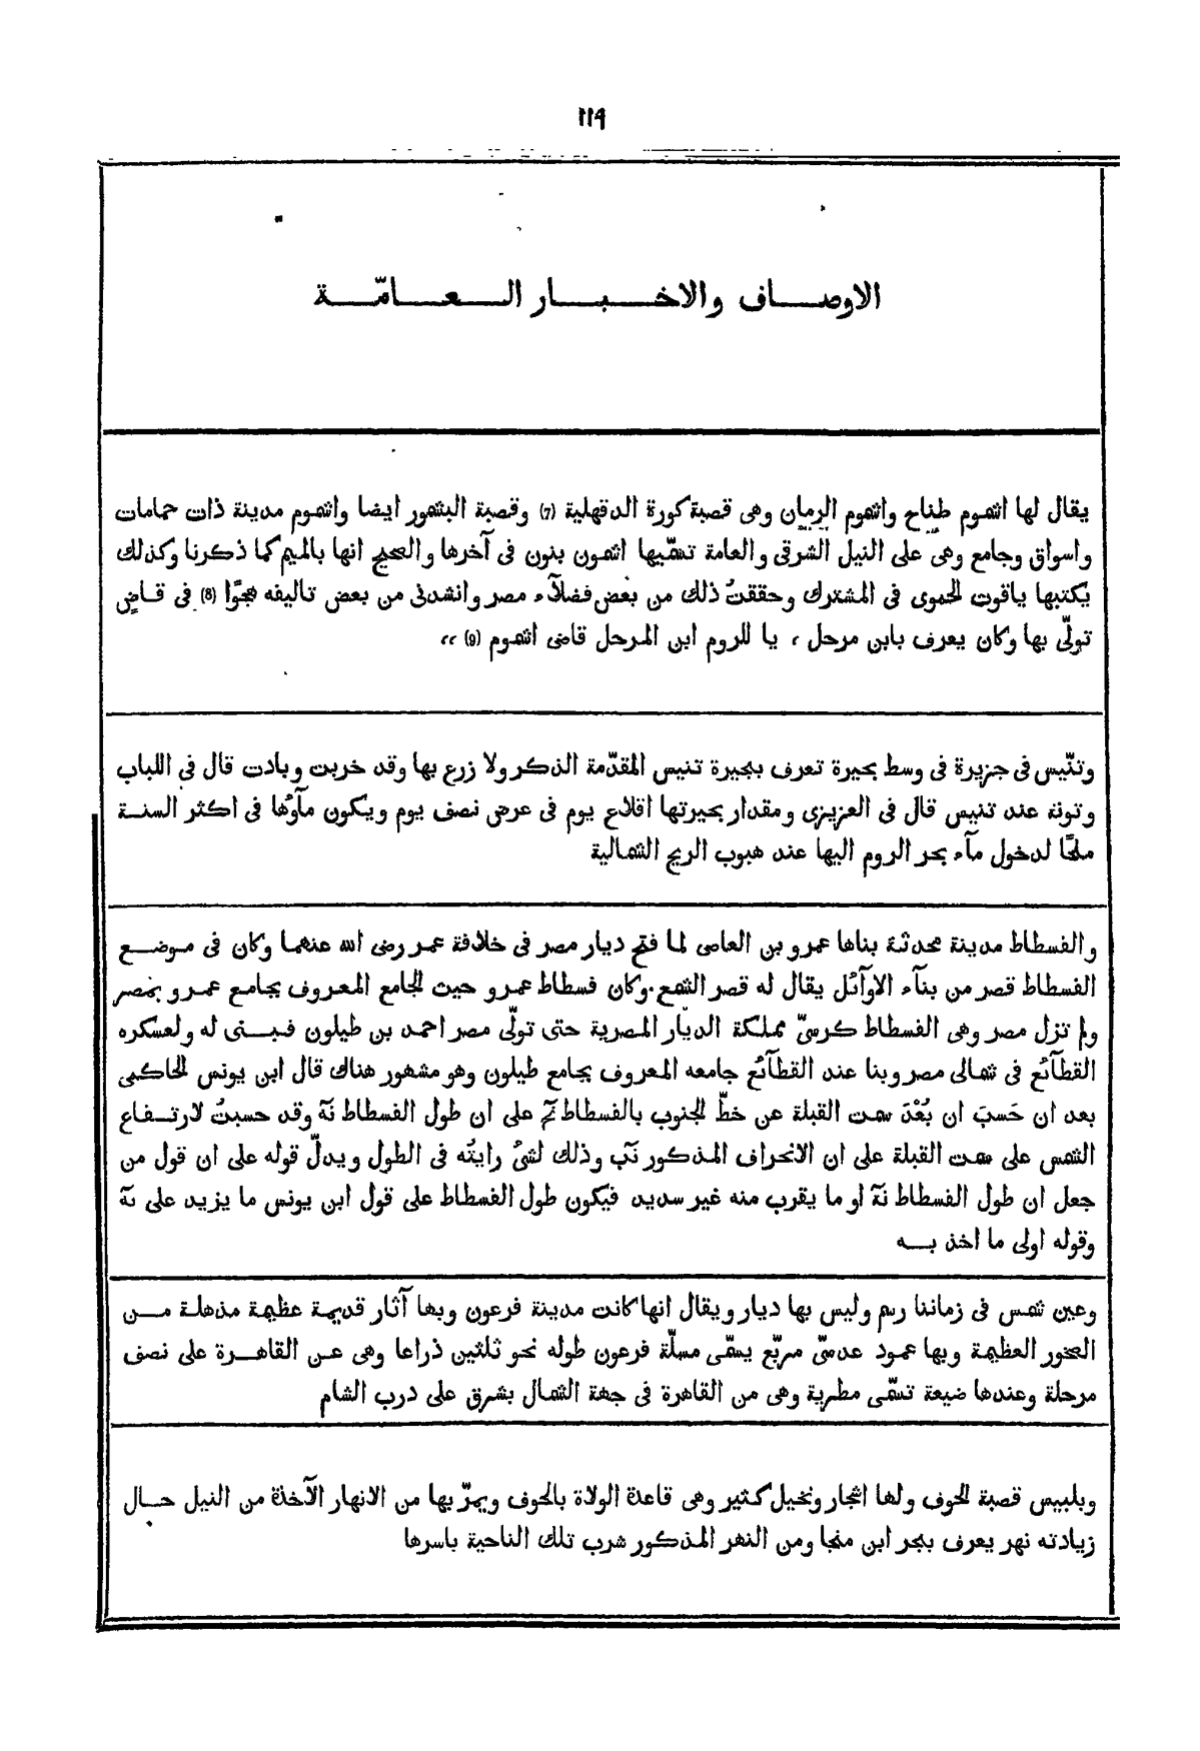 ١١٩
الاوصاف والاخبار العامّة
يقال لها اشموم طناح واشموم الرمان وهى قصبة كورة الدقهلية (7) وقصبة البشمور ايضا واشموم مدينة ذات حمامات
واسواق وجامع وهى على النيل الشرقى والعامة تسمّيها اشمون بنون فى آخرها والصحيح انها بالميم كما ذكرنا وكذلك
يكتبها ياقوت الحموى فى المشترك وحققتُ ذلك من بعض فضلآء مصر وانشدنى من بعض تاليفه هجوًا (8) فى قاضٍ
تولّى بها وكان يعرف بابن مرحل ، يا للروم ابن المرحل قاضى اشموم (9) ،،
وتنّيس فى جزيرة فى وسط بحيرة تعرف ببحيرة تنيس المقدّمة الذكر ولا زرع بها وقد خربت وبادت قال فى اللباب
وتونة عند تنيس قال فى العزيزى ومقدار بحيرتها اقلاع يوم فى عرض نصف يوم ويكون مآوُها فى اكثر السنة
ملحًا لدخول مآء بحر الروم اليها عند هبوب الريح الشمالية
والفسطاط مدينة محدثة بناها عمرو بن العاصى لما فتح ديار مصر فى خلافة عمر رضى الله عنهما وكان فى موضع
الفسطاط قصر من بنآء الاوآئل يقال له قصر الشمع وكان فسطاط عمرو حيث الجامع المعروف بجامع عمرو بمصر
ولم تزل مصر وهى الفسطاط كرسىّ مملكة الديار المصرية حتى تولّى مصر احمد بن طيلون فبنى له ولعسكره
القطآئع فى شمالى مصر وبنا عند القطآئع جامعه المعروف بجامع طيلون وهو مشهور هناك قال ابن يونس الحاكمى
بعد ان حَسبَ ان بُعْدَ سمت القبلة عن خطّ الجنوب بالفسطاط على ان طول الفسطاط نَه وقد حسبتُ لارتفاع
الشمس على سمت القبلة على ان الانحراف المذكور وذلك لشئ رايتُه فى الطول ويدلّ قوله على ان قول من
جعل ان طول الفسطاط نَه او ما يقرب منه غير سديد فيكون طول الفسطاط على قول ابن يونس ما يزيد على نَه
وقوله اولى ما اخذ به
وعين شمس فى زماننا رسم وليس بها ديار ويقال انها كانت مدينة فرعون وبها آثار قديمة عظيمة مذهلة من
الصخور العظيمة وبها عمود عدسىّ مربّع يسمّى مسلّة فرعون طوله نحو ثلثين ذراعا وهى عن القاهرة على نصف
مرحلة وعندها ضيعة تسمّى مطرية وهى من القاهرة فى جهة الشمال بشرق على درب الشام
وبلبيس قصبة الحوف ولها اشجار ونخيل كثير وهى قاعدة الولاة بالحوف ويمرّ بها من الانهار الآخذة من النيل حال
زيادته نهر يعرف ببحر ابن منجا ومن النهر المذكور شرب تلك الناحية باسرها